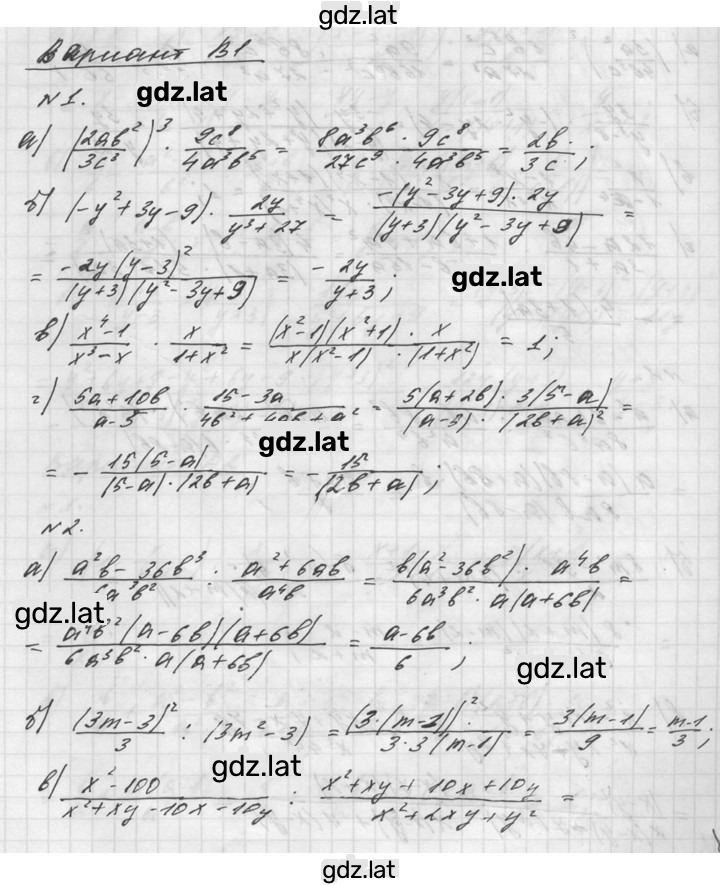 gdz.lat
Вариант В1
№1.
gdz.lat
а) (2ab²/3c³)³ · 9c⁸/4a³b⁵ = 8a³b⁶ · 9c⁸/27c⁹ · 4a³b⁵ = 2b/3c;
б) (-y²+3y-9) · 2y/y³+27 = -(y²-3y+9) · 2y/(y+3)(y²-3y+9) =
= -2y(y-3)²/(y+3)(y²-3y+9) = -2y/y+3;
gdz.lat
в) x⁴-1/x³-x · x/1+x² = (x²-1)(x²+1) · x/x(x²-1) · (1+x²) = 1;
г) 5a+10b/a-5 · 15-3a/4b²+4ab+a² = 5(a+2b) · 3(5-a)/(a-5) · (2b+a)² =
gdz.lat
= - 15(5-a)/(5-a)·(2b+a) = - 15/(2b+a);
№2.
а) a²b-36b³/6a³b² : a²+6ab/a⁴b = b(a²-36b²) · a⁴b/6a³b² · a(a+6b) =
gdz.lat
= a⁴b²(a-6b)(a+6b)/6a³b² · a(a+6b) = a-6b/6;
gdz.lat
б) (3m-3)²/3 : (3m²-3) = (3·(m-1))²·/3·3(m-1) = 3(m-1)/9 = m-1/3;
gdz.lat
в) x²-100/x²+xy-10x-10y : x²+xy+10x+10y/x²+2xy+y² =
gdz.lat